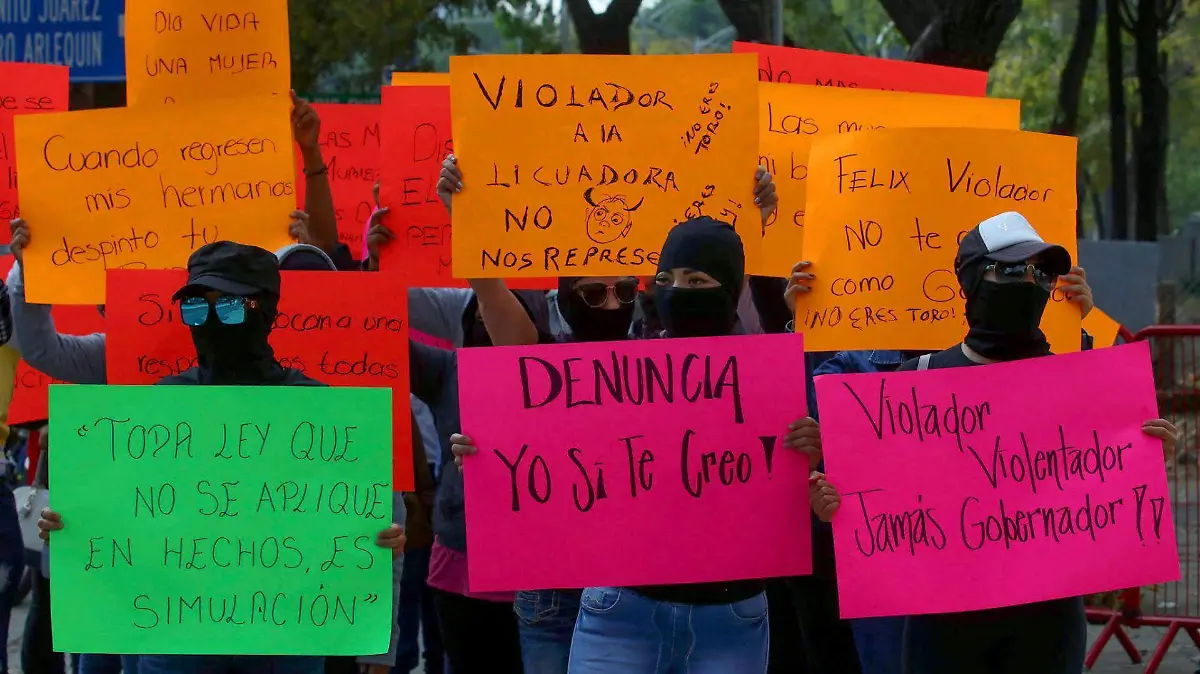 NITO JUÁREZ
RO ARLEQUIN
DIO VIDA
UNA MUJER
Cuando regresen
mis hermanas
despinto tu
VIOLADOR
A lA
LICUADORA
NO
NOS REPRESE
¡NO ERES
TORO!
NO MÁS
Las
FELIX Violador
NO te
como
¡NO ERES TORO!
ocan a una
respo
todas
"TODA LEY QUE
NO SE APLIQUE
EN HECHOS, ES
SIMULACIÓN"
DENUNCIA
Yo Sí Te Creo!
Violador
Violentador
Jamás Gobernador!!